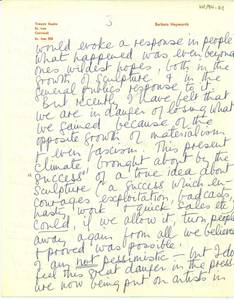 Trewyn Studio
St. Ives
Cornwall
Barbara Hepworth
3
would evoke a response in people
What happened was even beyond
ones wildest hopes, both in the
growth of sculpture, & in the
general public's response to it.
But recently I have felt that
we are in danger of losing what
we gained because of the
opposite growth of materialism
& even fascism. This present
climate, brought about by the
"success" of a true idea about
sculpture (a success which en-
courages exploitation, bad casts,
hasty work, quick sales etc)
could, if we allow it, turn people
away again from all we believed
& proved was possible.
I am not pessimistic – but I do
feel this great danger in the press-
we are now being put on artists in